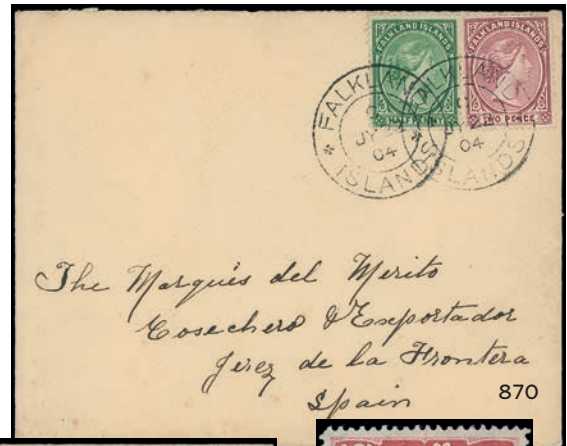 FALKLAND ISLANDS FALKLAND ISLANDS
HALF PENNY TWO PENCE
FALKLAND ISLANDS
JY 04
FALKLAND ISLANDS
JY 22
04
The Marqués del Merito
Cosechero & Exportador
Jerez de la Frontera
Spain
870